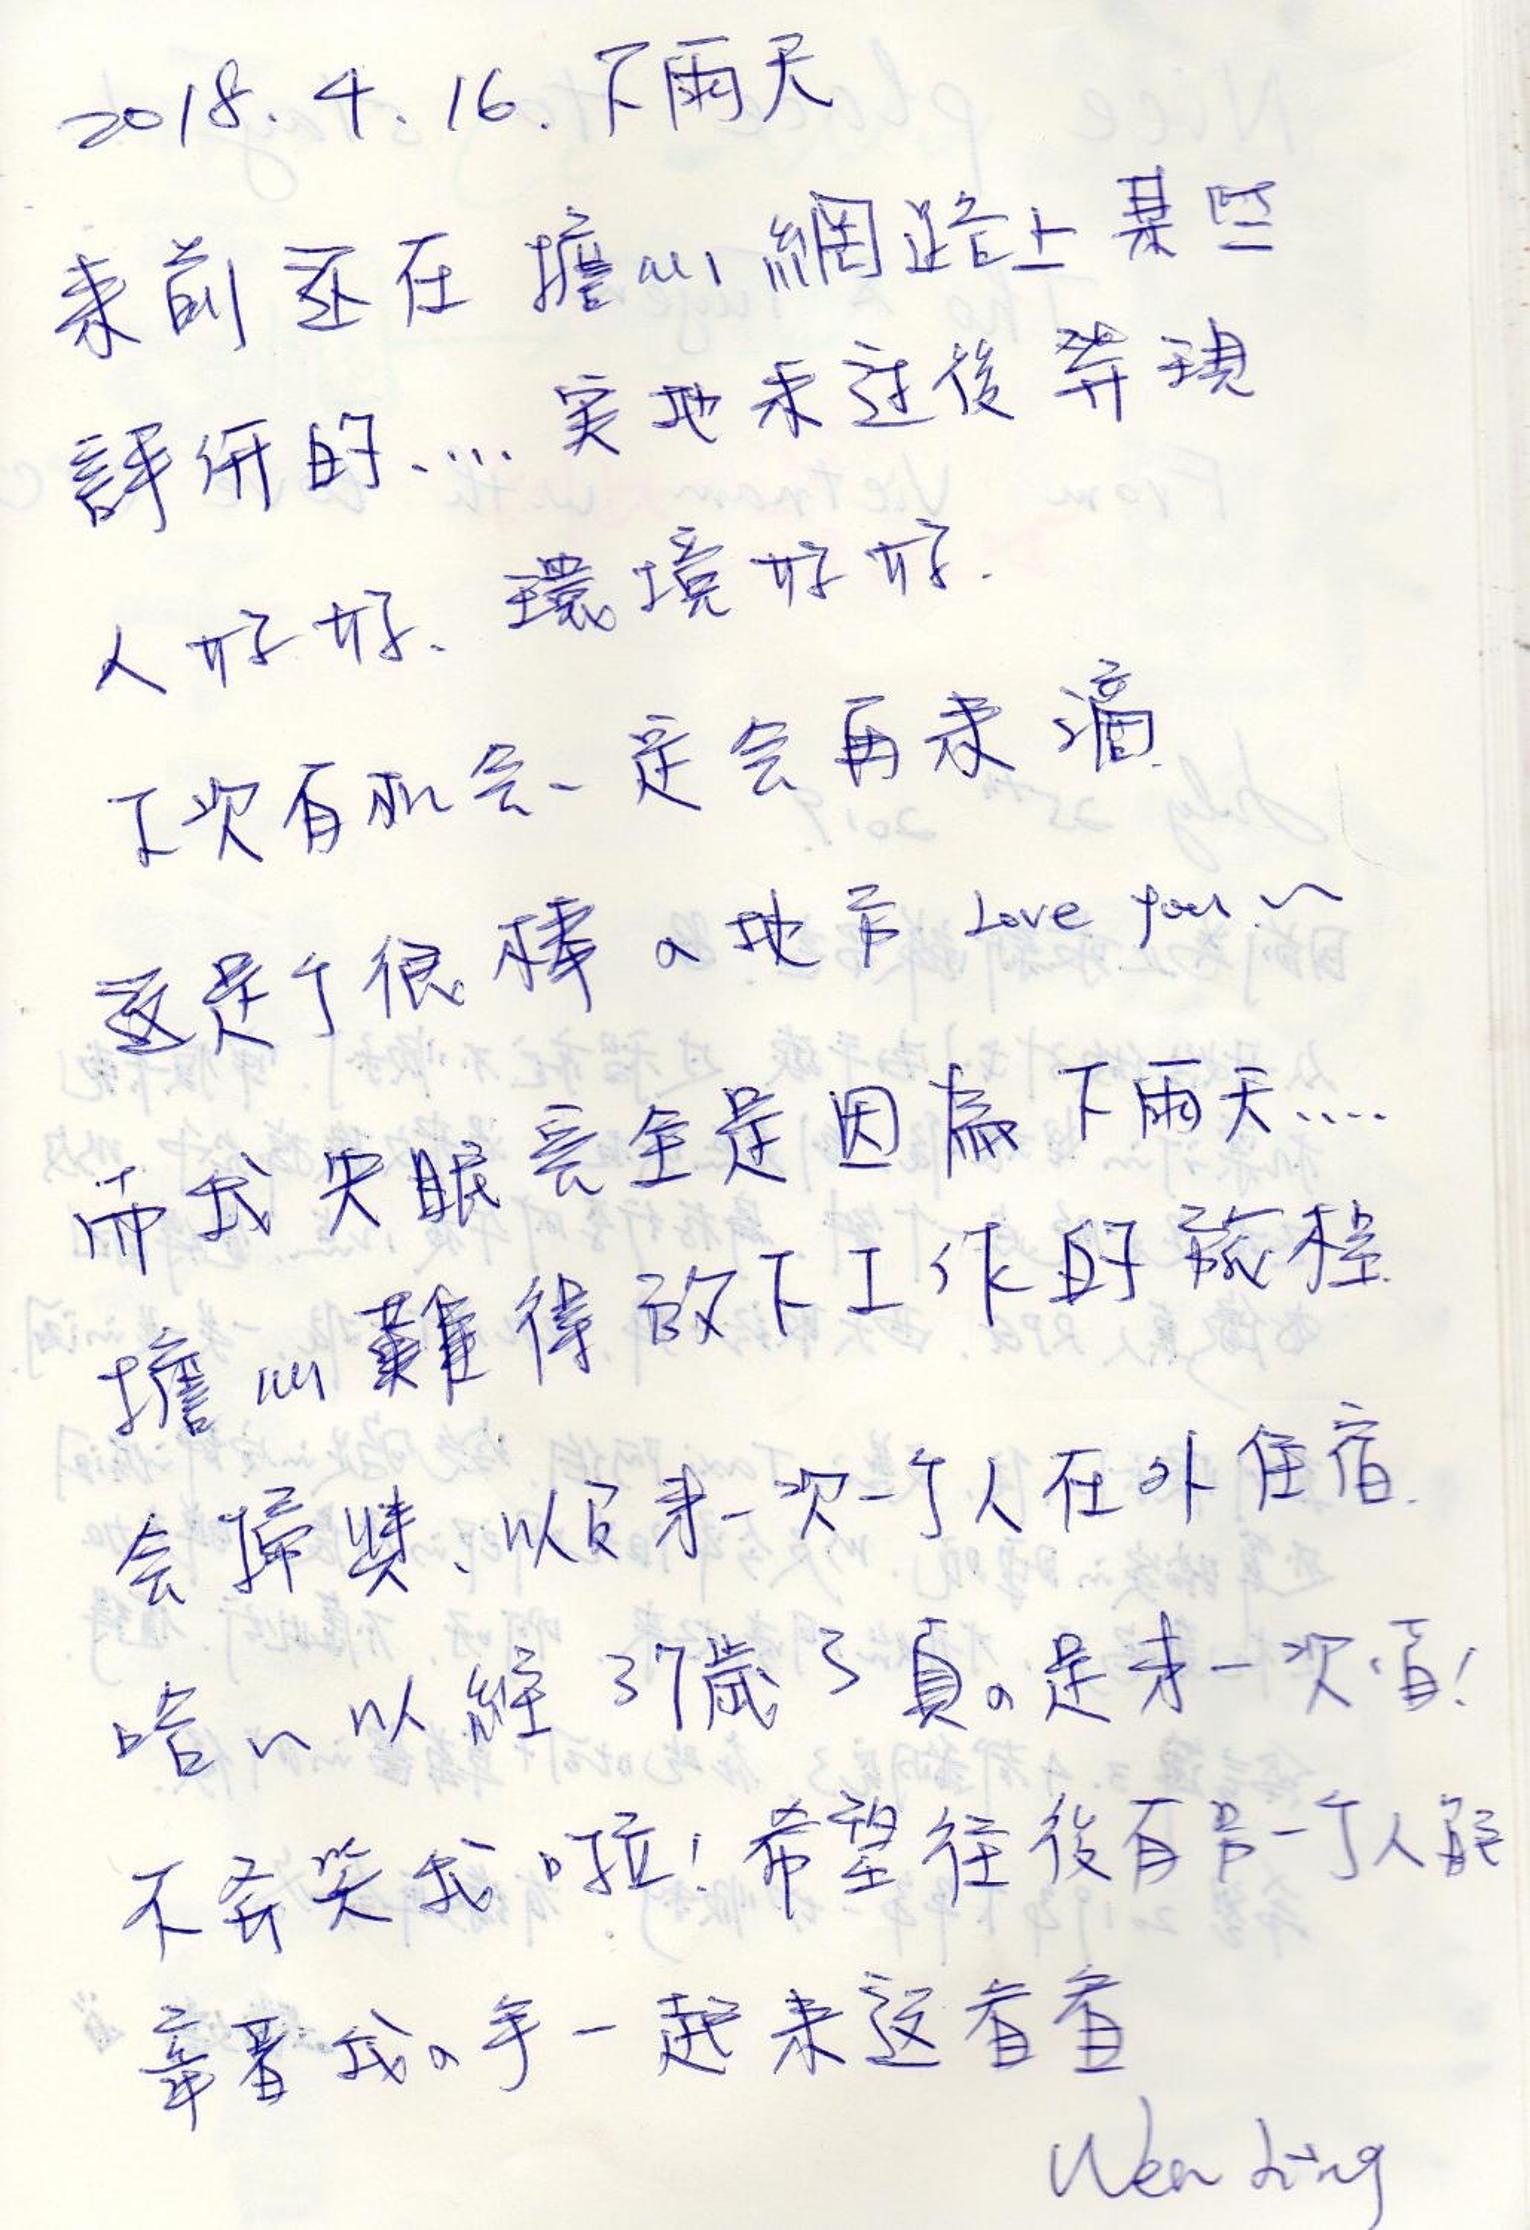 2018.4.16.下雨天
來前还在擔心網路上某些
評价的..... 实地來过後発現
人好好、環境好好.
下次有机会一定会再來滴.
这是个很棒の地方 Love you~
而我失眠完全是因為下雨天....
擔心難得放下工作的旅程
会掃興、以及第一次一个人在外住宿.
哈~以經37歲了真の是第一次值!
不要笑我啦!希望往後有另一个人能
牽著我の手一起來这看看
Wen Ling